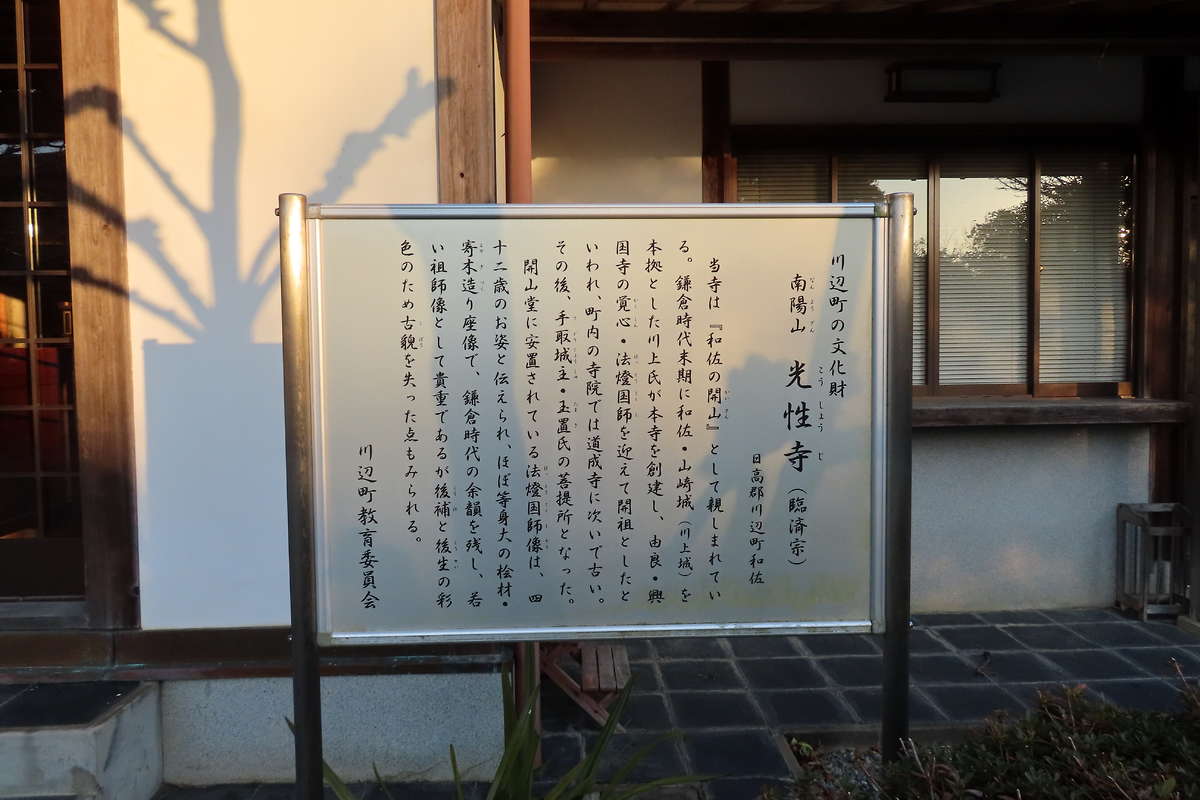 川辺町の文化財
南陽山 光性寺（臨済宗）
日高郡川辺町和佐
当寺は『和佐の開山』として親しまれてい
る。鎌倉時代末期に和佐・山崎城（川上城）を
本拠とした川上氏が本寺を創建し、由良・興
国寺の覚心・法燈国師を迎えて開祖としたと
いわれ、町内の寺院では道成寺に次いで古い。
その後、手取城主・玉置氏の菩提所となった。
開山堂に安置されている法燈国師像は、四
十二歳のお姿と伝えられ、ほぼ等身大の桧材・
寄木造り座像で、鎌倉時代の余韻を残し、若
い祖師像として貴重であるが後補と後生の彩
色のため古貌を失った点もみられる。
川辺町教育委員会